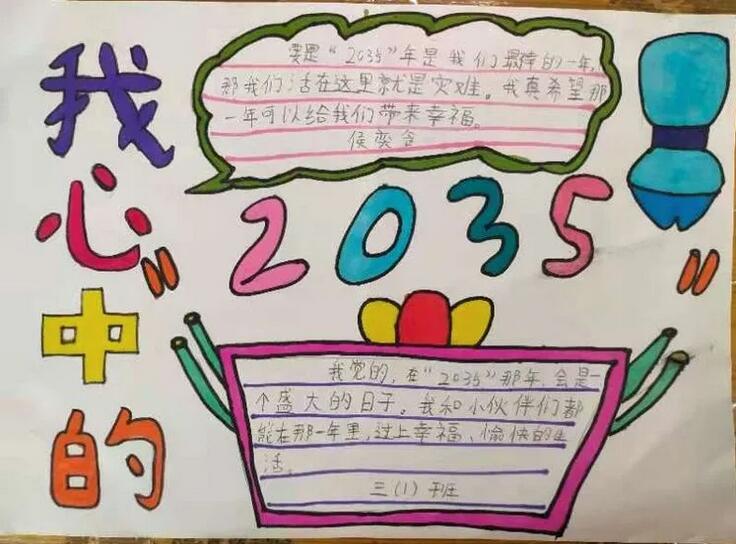 我心中的
"2035"
要是“2035”年是我们最棒的一年，
那我们活在这里就是灾难。我真希望那
一年可以给我们带来幸福。
侯奕
我觉的，在“2035”那年，会是一
个盛大的日子。我和小伙伴们都
能在那一年里，过上幸福、愉快的生
活。
三（1）班